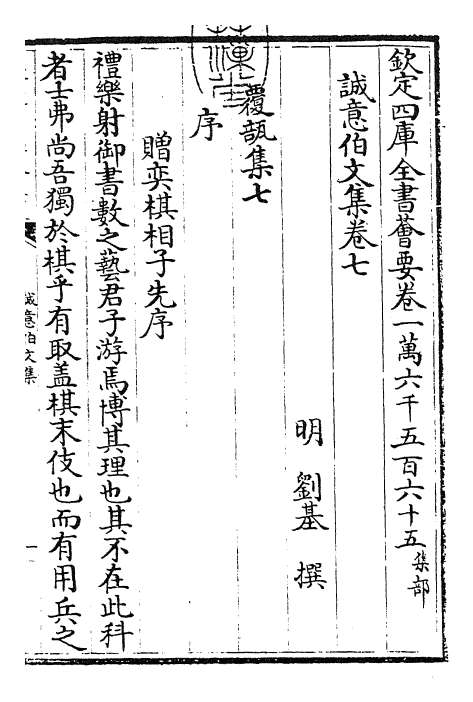 欽定四庫全書薈要卷一萬六千五百六十五集部
誠意伯文集卷七
明劉基撰
覆瓿集七
序
贈奕棋相子先序
禮樂射御書數之藝君子游焉博其理也其不在此科
者士弗尚吾獨於棋乎有取盖棋末伎也而有用兵之
誠意伯文集
一